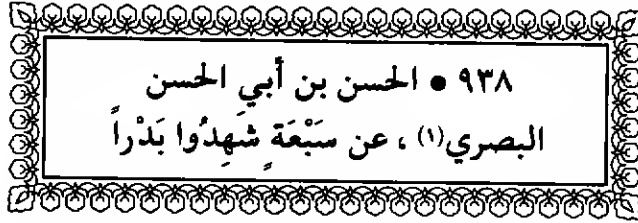 ٩٣٨ • الحسن بن أبي الحسن
البصري(١) ، عن سَبْعَةٍ شَهِدُوا بَدْراً